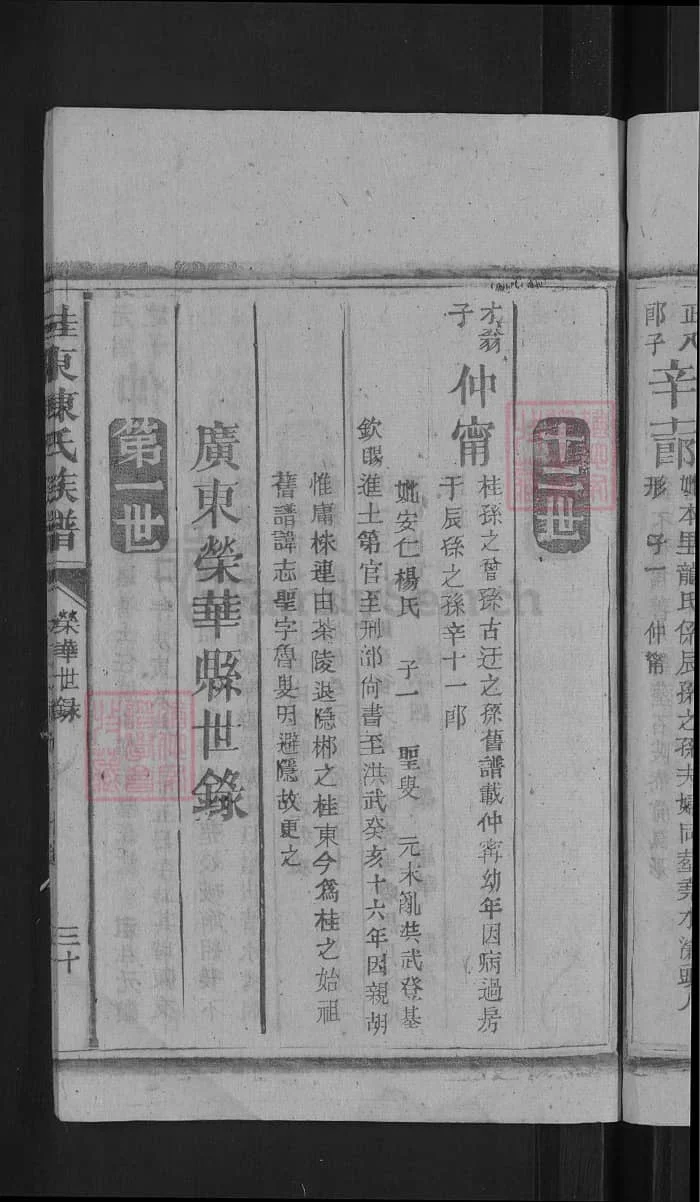 正八
郎子
辛郎
妣本里龍氏係辰孫之孫夫婦同葬
形 子一 仲甯
十二世
才翁
子
仲甯
桂孫之曾孫古迂之孫舊譜載仲甯幼年因病過房
于辰孫之孫辛十一郎
妣安仁楊氏 子一 聖叟 元末亂洪武登基
欽賜進士第官至刑部尚書至洪武癸亥十六年因親胡
惟庸株連由茶陵退隐郴之桂東今為桂之始祖
舊譜諱志聖字魯叟明避隱故更之
廣東榮華縣世錄
第一世
桂東陳氏族譜
榮華世録
三十